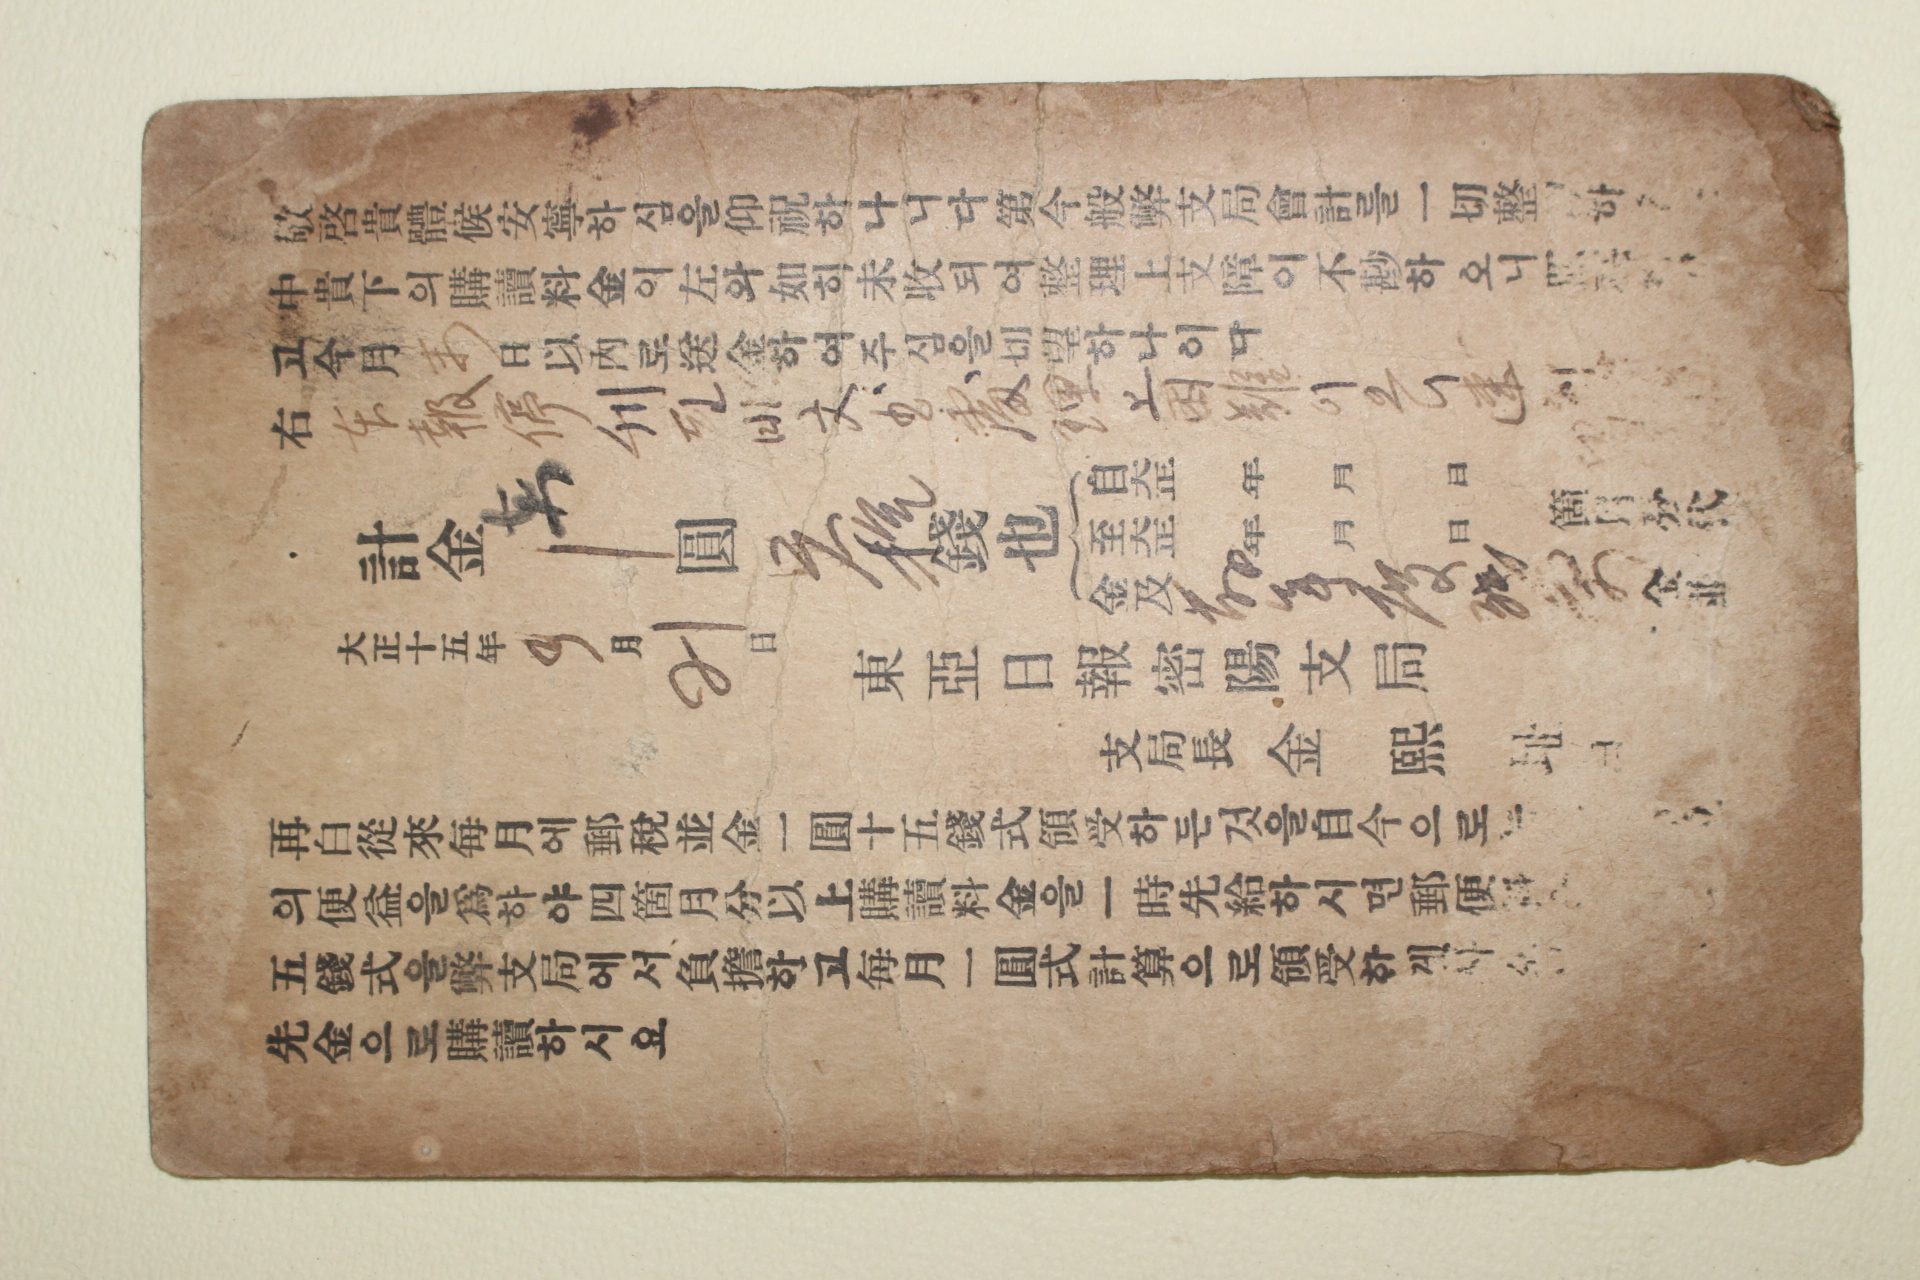 敬啓貴體候安寧하심을仰祝하나니다第今般弊支局會計를一切整
中貴下의購讀料金이左와如히未收되여整理上支障이不尠하오니
고今月末日以內로送金하여주심을切望하나이다
右 本報停 文書處理上困難이오니速
計金 一圓五拾錢也
自大正 年 月 日
至大正 年 月 日 箇月分代
金及 年度 金並
大正十五年9月21日
東亞日報密陽支局
支局長 金熙址
再白從來每月에郵稅並金一圓十五錢式領受하든것을自今으로
의便益을爲하야四箇月分以上購讀料金을一時先給하시면郵便
五錢式을弊支局에서負擔하고每月一圓式計算으로領受하
先金으로購讀하시요